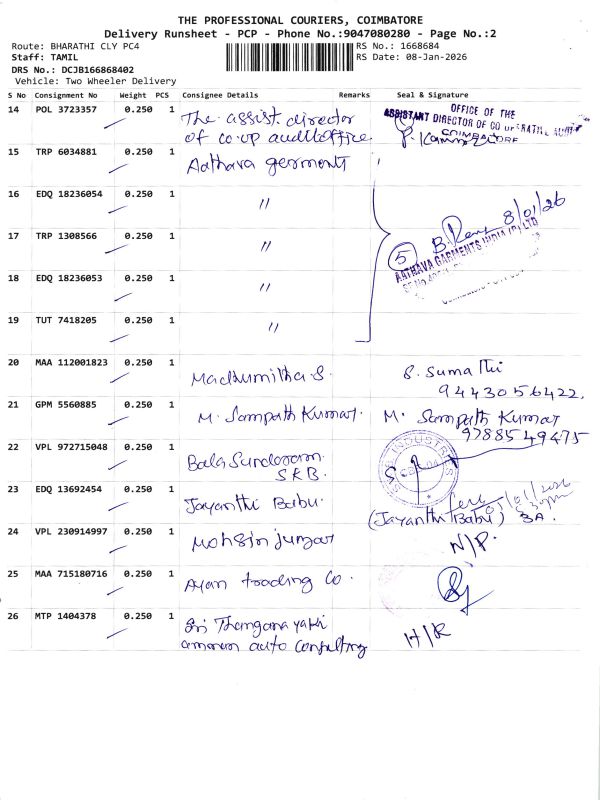 THE PROFESSIONAL COURIERS, COIMBATORE
Delivery Runsheet - PCP - Phone No.:9047080280 - Page No.:2
Route: BHARATHI CLY PC4
RS No.: 1668684
Staff: TAMIL
RS Date: 08-Jan-2026
DRS No.: DCJB166868402
Vehicle: Two Wheeler Delivery
S No Consignment No Weight PCS Consignee Details Remarks Seal & Signature
14 POL 3723357 0.250 1 The assist. director
of co-op auditoffice.
OFFICE OF THE
ASSISTANT DIRECTOR OF CO OPERATIVE AUDIT
COIMBATORE
15 TRP 6034881 0.250 1 Aathava germents
16 EDQ 18236054 0.250 1 "
17 TRP 1308566 0.250 1 "
5 B. 8/01/26
AATHAVA GARMENTS INDIA (P) LTD
18 EDQ 18236053 0.250 1 "
19 TUT 7418205 0.250 1 "
20 MAA 112001823 0.250 1 Madhumitha S. S. Sumathi
9443056422.
21 GPM 5560885 0.250 1 M. Sampath Kumar. M. Sampath Kumar
9788549475
22 VPL 972715048 0.250 1 Bala Sundaram
SKB.
INDUSTRIES
23 EDQ 13692454 0.250 1 Jayanthi Babu. (Jayanthi Babu) 3A.
24 VPL 230914997 0.250 1 Mohsin jumar N/P.
25 MAA 715180716 0.250 1 Ayan trading Co.
26 MTP 1404378 0.250 1 Sri Thanganayaki
amman auto consulting H/R